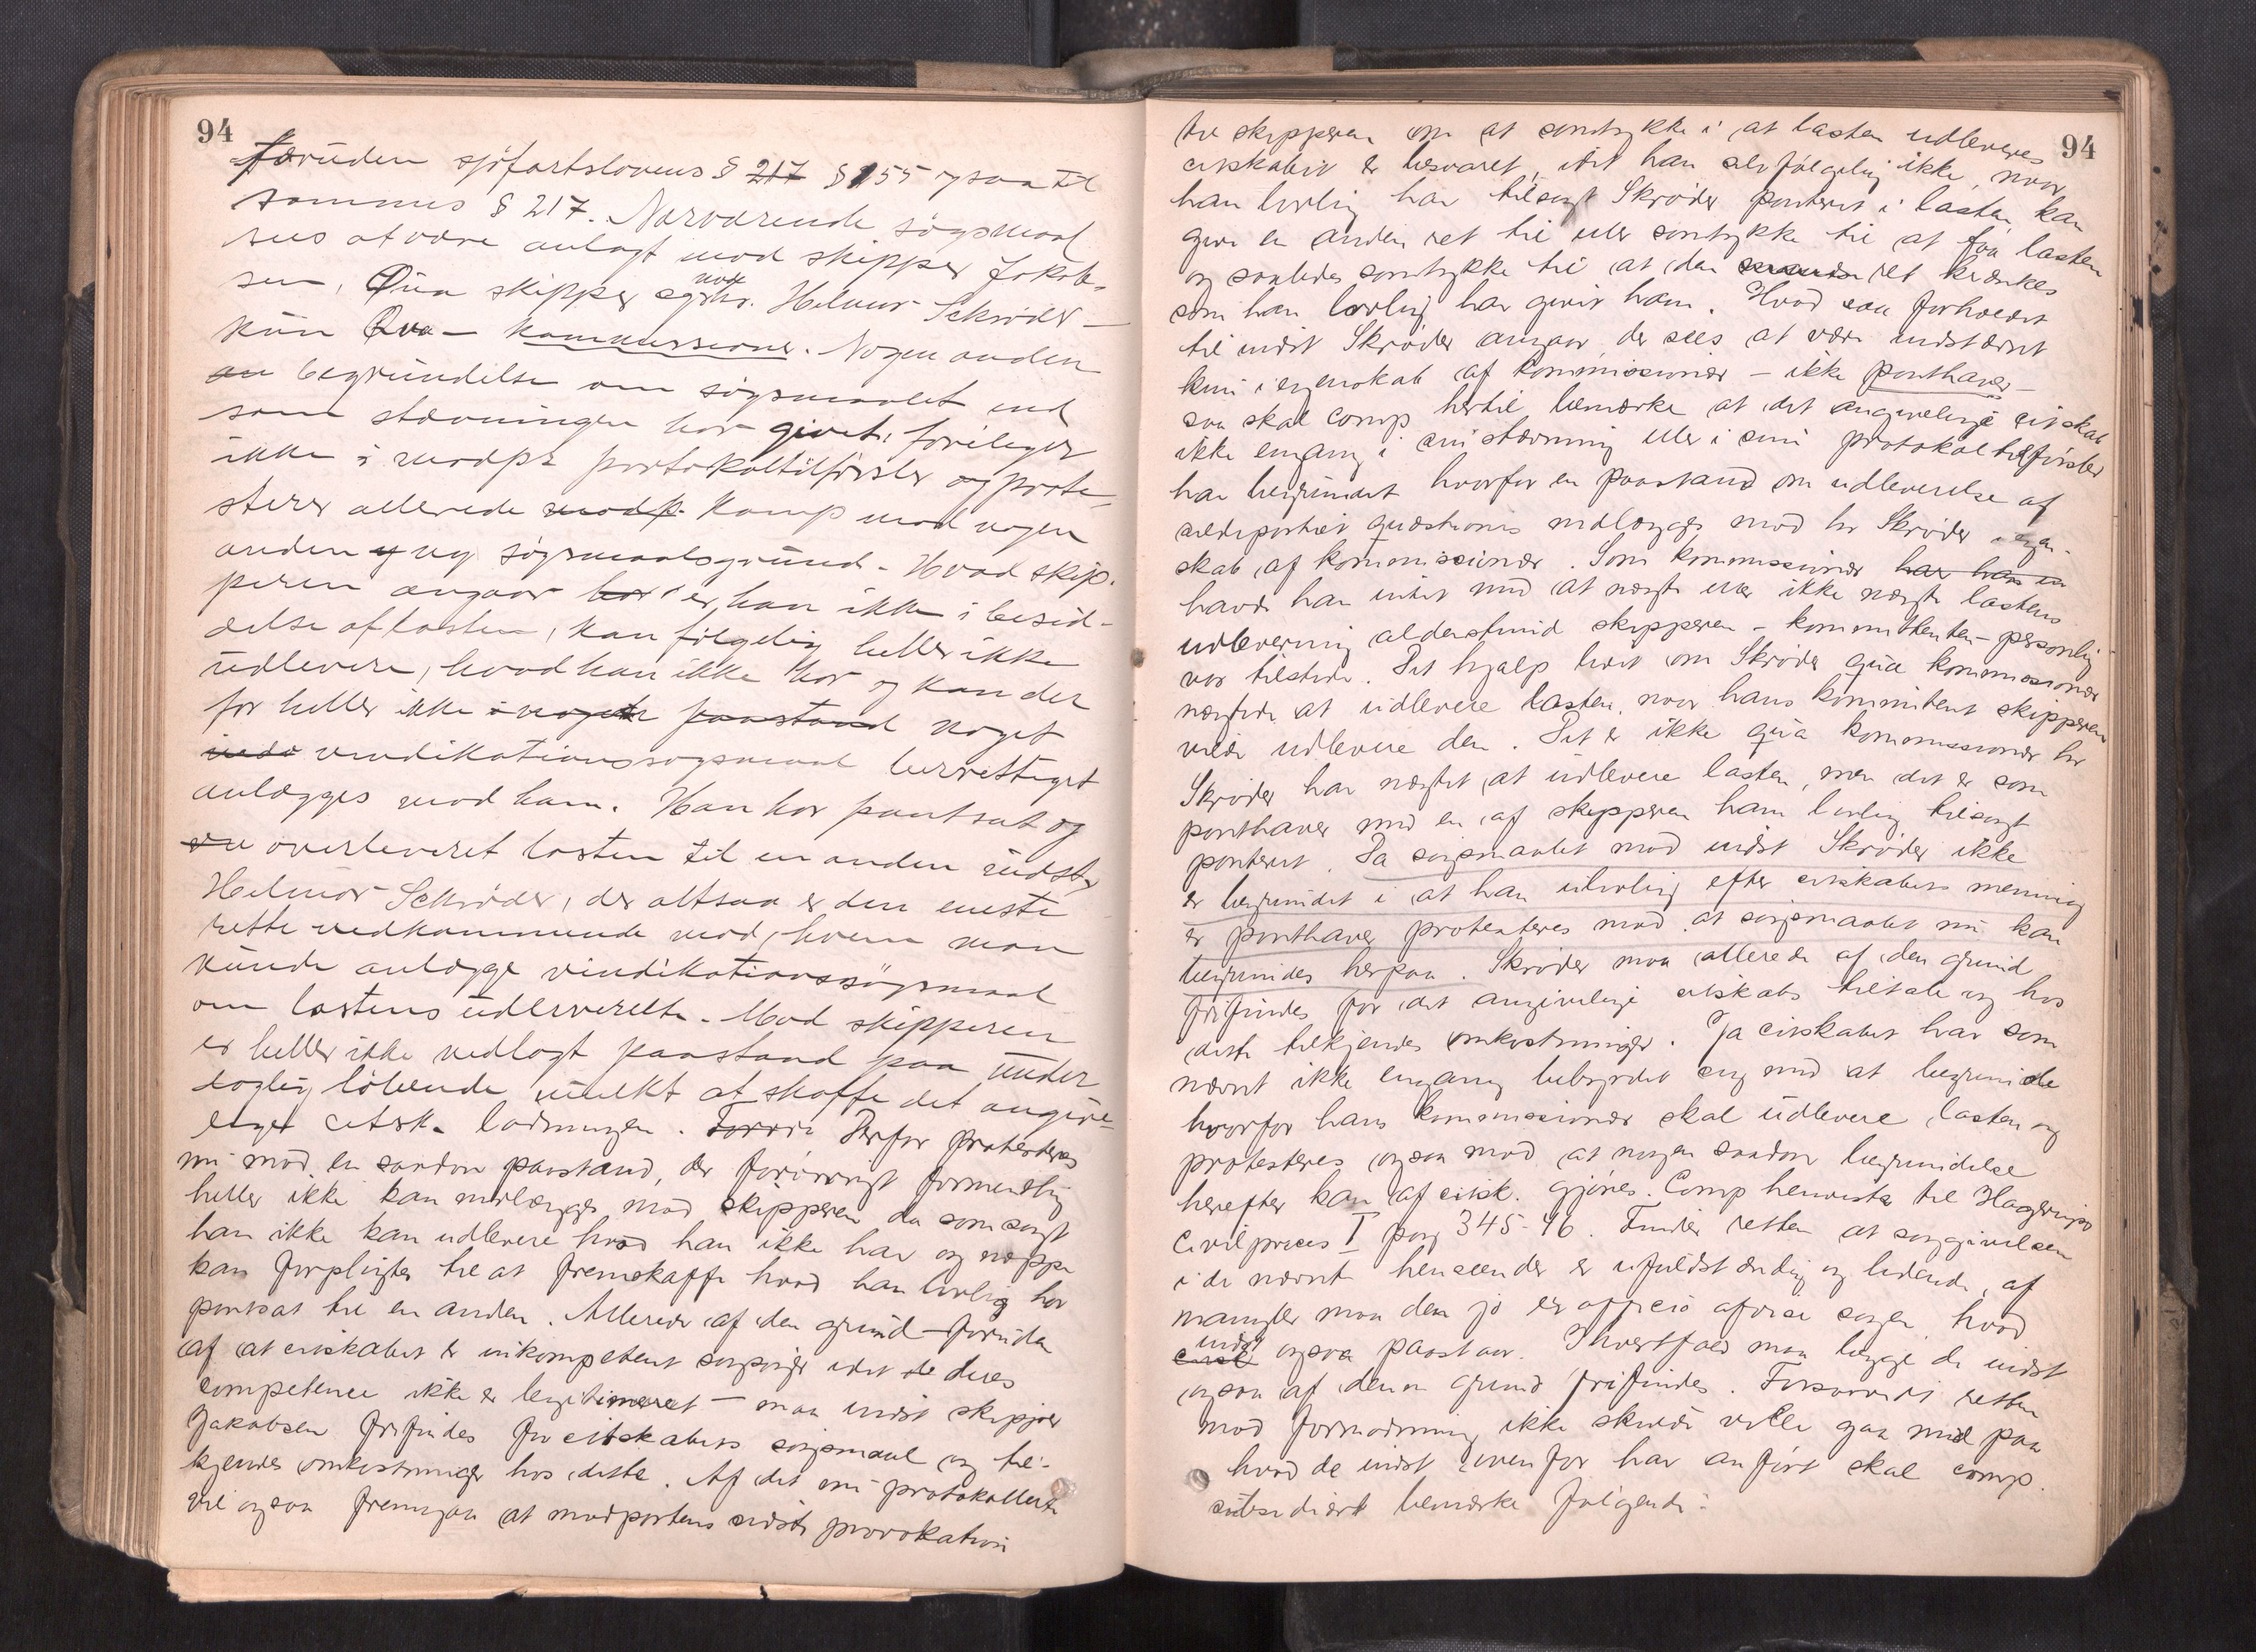 94
foruden sjöfartslovens § 217 § 155 ogsaa til
sammes § 217. Nærværende søgsmaal
sees at være anlagt mod skipper Jakob-
sen, Qua skipper og mod hr. Helmer Schrøder –
kun Qva – kommissionær. Nogen anden
en begründelse om søgsmaalet end
som stævningen har givet, foreligger
ikke i modps protokoltilförsler og prote-
sterer allerede modp. Komp mod nogen
anden og ny søgsmaalsgrund. Hvad skip-
peren angaar har er han ikke i besid-
delse af lasten, kan følgelig heller ikke
udlevere, hvad han ikke har og kan der
for heller ikke i noget paastand noget
vindikationssøgsmaal berettiget
anlægges mod ham. Han har pantsat og
overleveret lasten til en anden indst.
Helmer Schrøder, der altsaa er den eneste
rette vedkommende mod, hvem man
kunde anlægge vindikationssögsmaal
om lastens udleverelse. Mod skipperen
er heller ikke nedlagt paastand paa under
daglig löbende mulkt at skaffe det angive-
lige citsk. ladningen. Derfor protesteres
nu mod en saadan paastand, der forövrigt formentlig
heller ikke kan nedlægges mod skipperen da som sagt
han ikke kan udlevere hvad han ikke har og neppe
kan forpligtes til at fremskaffe hvad han lovlig har
pantsat til en anden. Allerede af den grund – foruden
af at citskabet er inkompetent sagsøger idet de deres
competence ikke er legitimeret – maa indst skipper
Jakobsen frifindes for citskabets søgsmaal og til-
kjendes omkostninger hos dette. Af det nu protokollerte
vil ogsaa fremgaa at modpartens sidste provokation
94
til skipperen om at samtykke i at lasten udleveres
citskabet er besvaret, idet han selvfølgelig ikke, naar
han lovlig har tilsagt Skrøder panteret i lasten, kan
give en anden ret til eller samtykke til at faa lasten
og saaledes samtykke til at den ret krænkes
som han lovlig har givet ham. Hvad saa forholdet
til indst Skrøder angaar, der sees at være indstævnt
kun i egenskab af kommissionær – ikke panthaver –
saa skal comp hertil bemærke at det angivelige citskab
ikke engang i sin stævning eller i sine protokoltilförsler
har begrundet hvorfor en paastand om udleverelse af
sildepartiet quæstionis nedlægges mod hr Skrøder i egen-
skab af kommissionær. Som kommissionær har han en
havde han intet med at nægte eller ikke nægte lastens
udlevering aldenstund skipperen – kommittenten – personlig
var tilstede. Det hjalp lidet om Skrøder qua kommissionær
nægtede at udlevere lasten, naar hans kommittent skipperen
vilde udlevere den. Det er ikke qua kommissionær hr
Skrøder har nægtet at udlevere lasten, men det er som
panthaver med en af skipperen ham lovlig tilsagt
panteret. Da søgsmaalet mod indst Skrøder ikke
er begrundet i at han ulovlig efter citskabets mening
er panthaver protesteres mod at søgsmaalet nu kan
begrundes herpaa. Skrøder maa allerede af den grund
frifindes for det angivelige citskabs tiltale og hos
dette tilkjendes omkostninger. Ja citskabet har som
nævnt ikke engang bebyrdet sig med at begrunde
hvorfor hans kommissionær skal udlevere lasten og
protesteres ogsaa mod at nogen saadan begrundelse
herefter kan af citsk. gjöres. Comp henviste til Hagerups
Civilproces I pag 345-46. Finder retten at saggivelsen
i de nævnte henseender er ufuldstændig og lidende af
mangler maa den jo ex officio afvise sagen, hvad
indst ogsaa paastaar. I hvertfald maa begge de indst
ogsaa af denne grund frifindes. Forsaavidt retten
mod formodning ikke skulde ville gaa med paa
hvad de indst ovenfor har anfört skal comp.
subsidiært bemærke følgende: